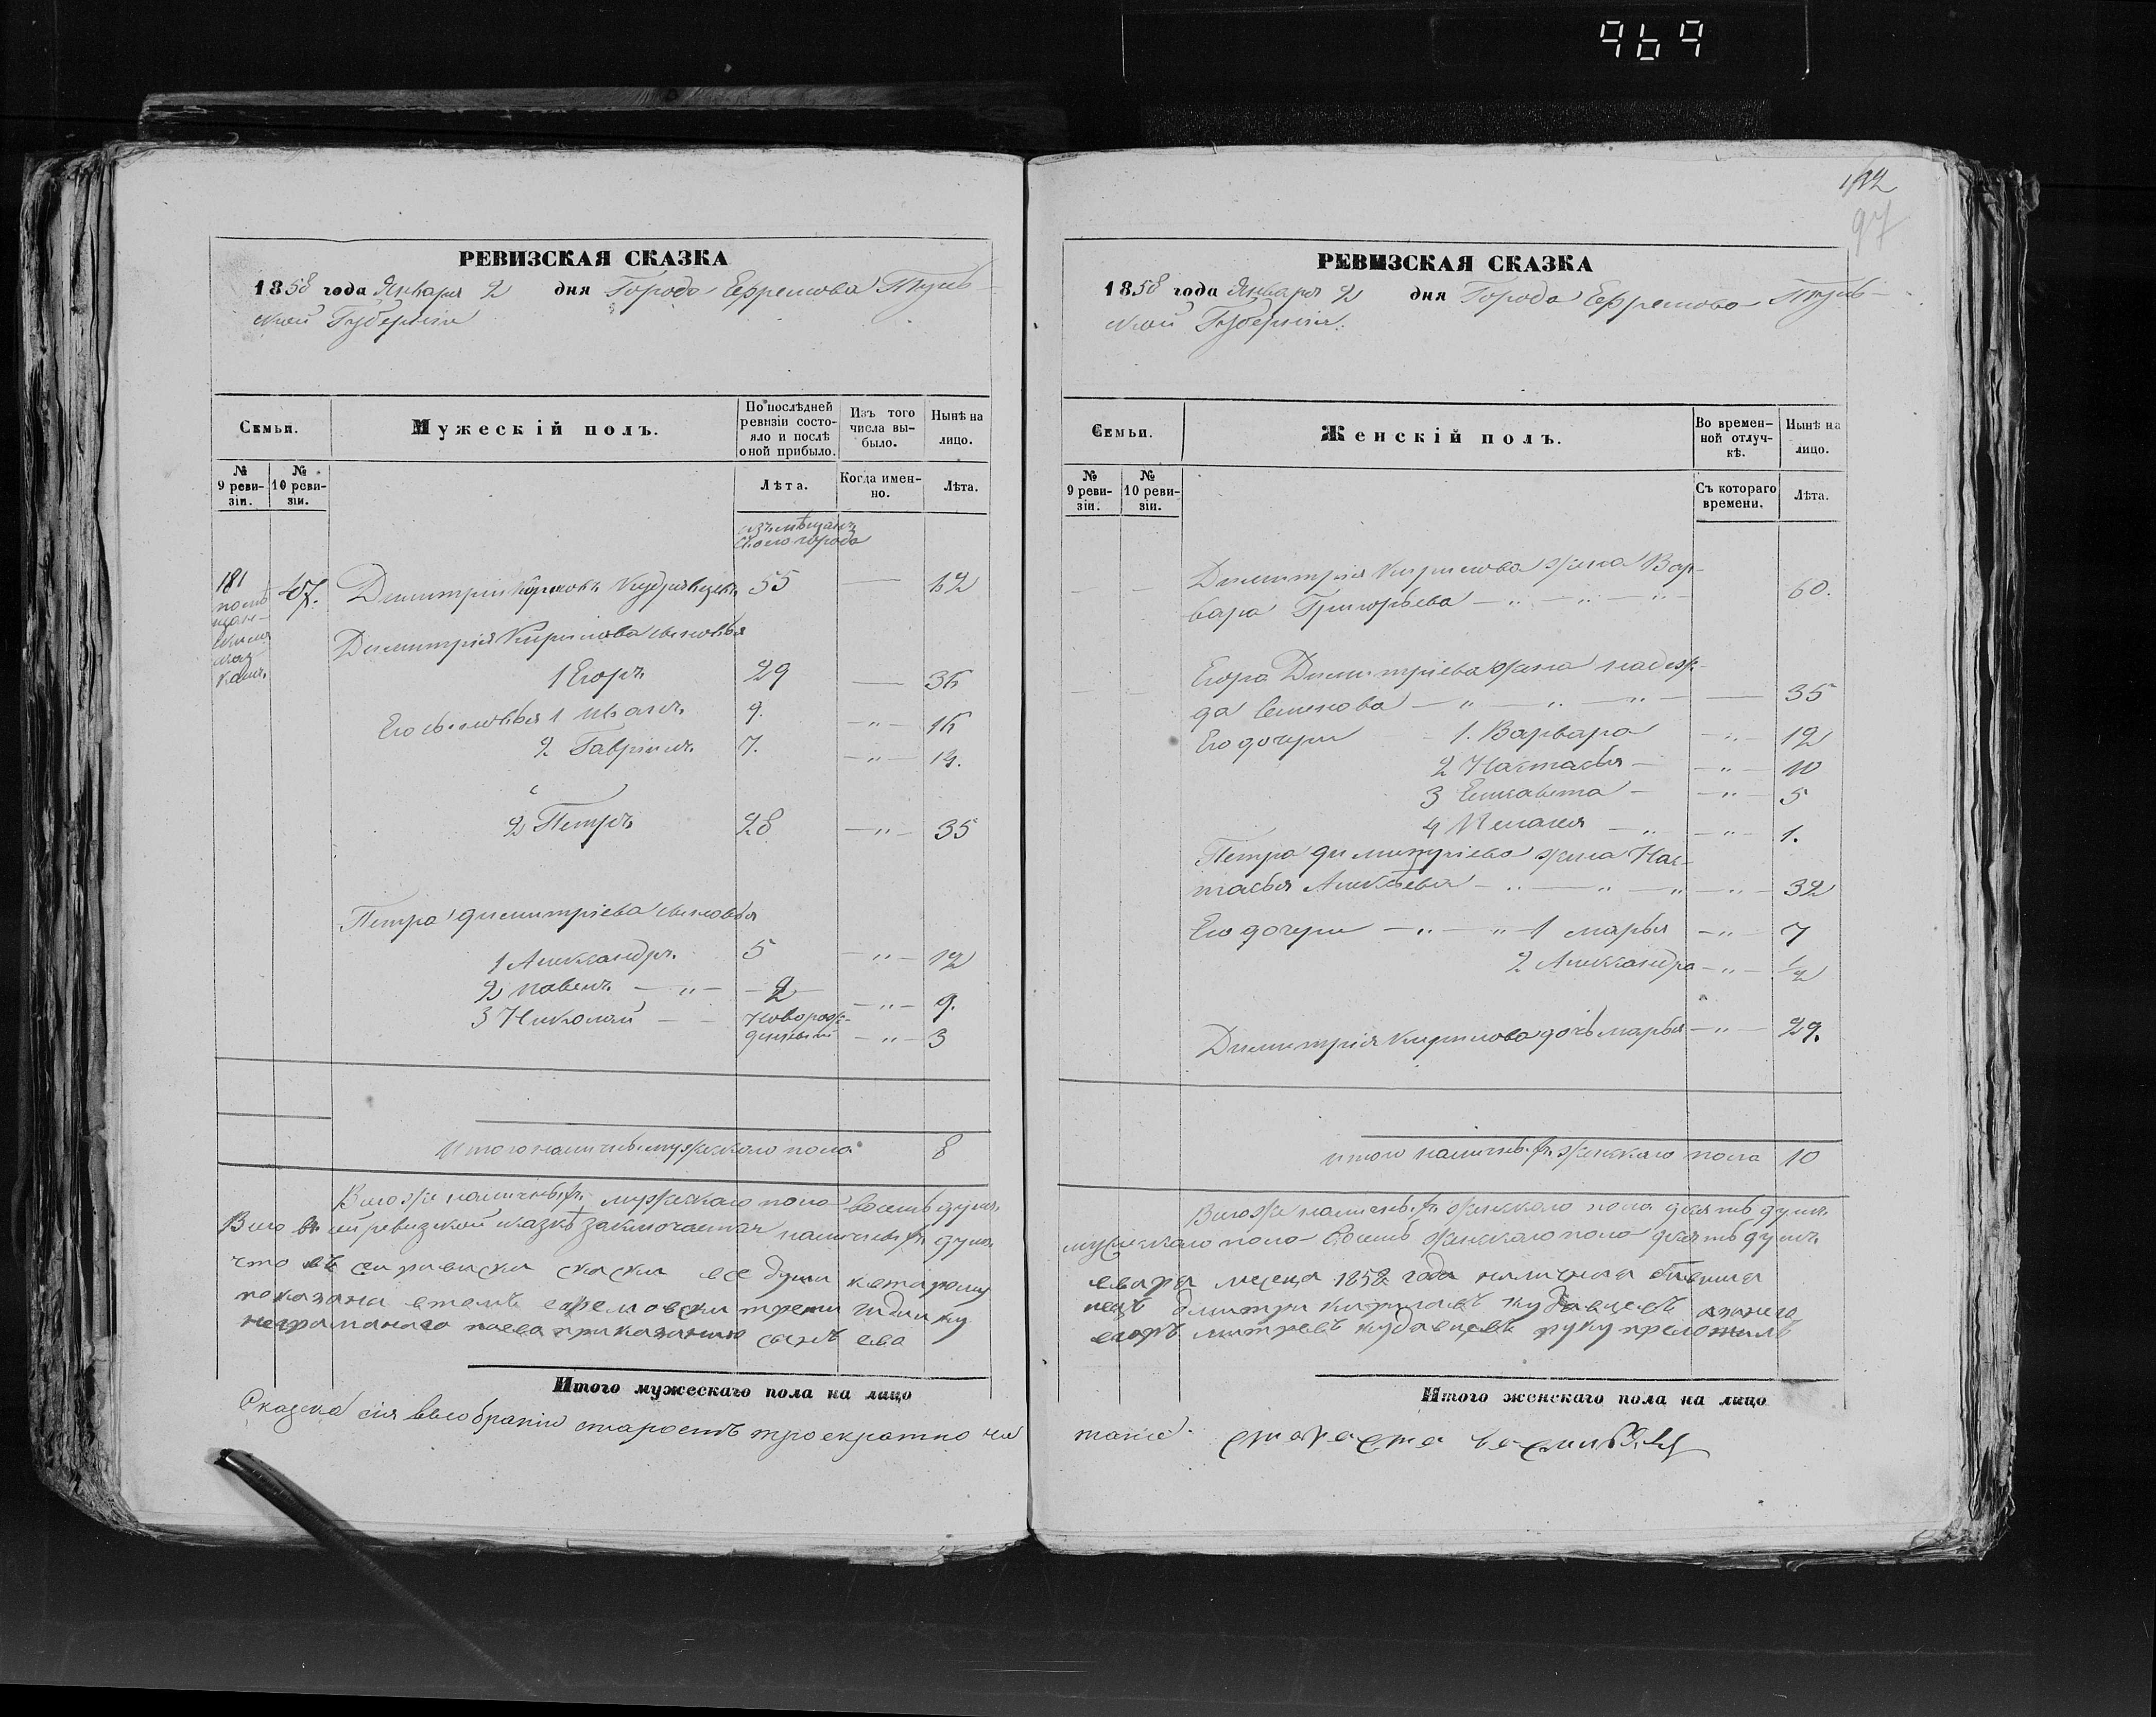 969
РЕВИЗСКАЯ СКАЗКА
1858 года Января 2 дня Города Ефремова Туль-
ской Губернiи
Семьи.
Мужескiй полъ.
По послѣдней ревизiи состо-яло и послѣ оной прибыло.
Изъ того числа вы-было.
Нынѣ на лицо.
№ 9 реви-зiи.
№ 10 реви-зiи.
Лѣта.
Когда имен-но.
Лѣта.
изъ мѣщанъ
города
181
47. Димитрiй Кириловъ Кудрявцевъ 55 — 62
Димитрiя Кирилова сыновья
1 Егоръ 29 — 36
Его сыновья 1 Иванъ 9. — 16
2 Гаврiилъ 7. — 14.
2 Петръ 28 — 35
Петра Димитрiева сыновья
1 Александръ 5 — 12
2 Павелъ — 2 — 9.
3 Николай — новорож-
денный — 3
Итого наличныхъ мужскаго пола 8
Всего же наличныхъ мужскаго пола восемь душъ
Всего въ сей ревизкой сказкѣ заключается наличныхъ душъ
что въ сей ревиски скаски все души
показаны
сынъ ево
Итого мужескаго пола на лицо
Сказка сiя въ собранiи старостъ троекратно чи
142
97
РЕВИЗСКАЯ СКАЗКА
1858 года Января 2 дня Города Ефремова Туль-
ской Губернiи.
Семьи.
Женскiй полъ.
Во времен-ной отлуч-кѣ.
Нынѣ на лицо.
№ 9 реви-зiи.
№ 10 реви-зiи.
Съ котораго времени.
Лѣта.
Димитрiя Кирилова жена Вар-
вара Григорьева 60.
Егора Димитрiева жена Надеж-
да Семенова 35
Его дочери 1. Варвара 12
2 Настасья 10
3 Елисавета 5
4 Пелагея 1.
Петра Димитрiева жена Нас-
тасья Алексѣева 32
Его дочери 1 Марья 7
2 Александра 1/2
Димитрiя Кирилова дочь Марья 29.
Итого наличныхъ женскаго пола 10
Всего же наличныхъ женскаго пола десять душъ
мужескаго пола восемь женскаго пола десять душъ.
1858 года
дмитри кириловъ
егоръ митревъ кудавцевъ руку преложилъ
Итого женскаго пола на лицо
тана. староста